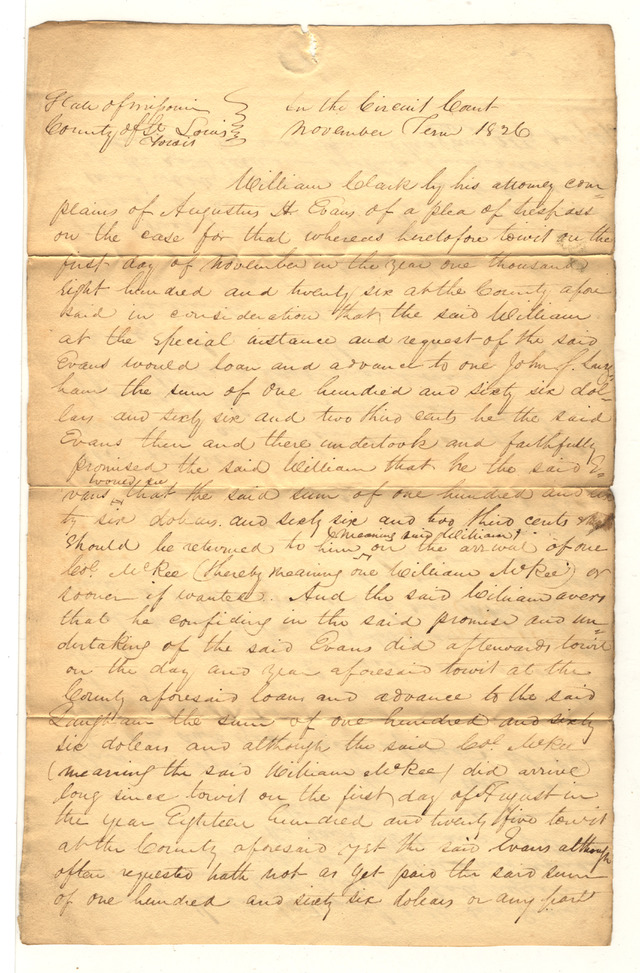 State of missouri
County of St Louis towit
in the Circuit Court
November Term 1826
William Clark by his attorney com=
plains of Augustus H. Evans of a plea of trespass
on the case for that whereas heretofore towit on the
first day of November in the year one thousand
Eight hundred and twenty six at the County afore
said in consideration that the said William
at the special instance and request of the said
Evans would loan and advance to one John S.
ham the sum of one hundred and sixty six dol-
lars and sixty six and two third cents he the said
Evans then and there undertook and faithfully
promised the said William that he the said E-
vans would see that the said sum of one hundred and six
ty six dollars and sixty six and two third cents
should be returned to him (meaning said William) on the arrival of one
Col. McKee (thereby meaning one William McKee) or
sooner if wanted. And the said William avers
that he confiding in the said promise and un=
dertaking of the said Evans did afterwards towit
on the day and year aforesaid towit at the
County aforesaid loan and advance to the said
Langham the sum of one hundred and sixty
six dollars and although the said Col. McKee
(meaning the said William McKee) did arrive
long since towit on the first day of August in
the year Eighteen hundred and twenty five towit
at the County aforesaid yet the said Evans although
often requested hath not as yet paid the said sum
of one hundred and sixty six dollars or any part